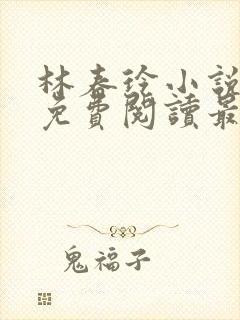 林春玲小說
免費閱讀最
鬼福子